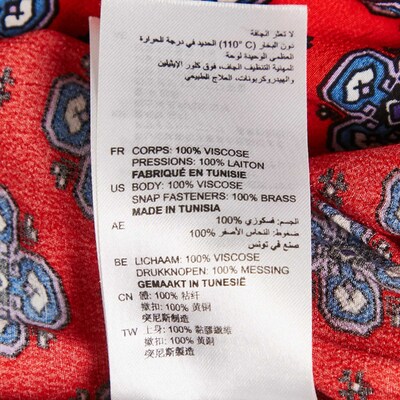 لا تعثر الجافة
دون البخار (110° C) الحديد في درجة الحرارة
العظمى الوحيدة لوحة
المهنية للتنظيف الجاف، فوق كلور الإيثيلين
والهيدروكربونات، العلاج الطبيعي
FR CORPS: 100% VISCOSE
PRESSIONS: 100% LAITON
FABRIQUÉ EN TUNISIE
US BODY: 100% VISCOSE
SNAP FASTENERS: 100% BRASS
MADE IN TUNISIA
AE الجسم: فسكوزي 100%
ضغوط: النحاس الأصفر 100%
صنع في تونس
BE LICHAAM: 100% VISCOSE
DRUKKNOPEN: 100% MESSING
GEMAAKT IN TUNESIË
CN 體: 100% 粘纤
揿扣: 100% 黄铜
突尼斯制造
TW 上身: 100% 黏膠纖維
撳扣: 100% 黃銅
突尼斯製造